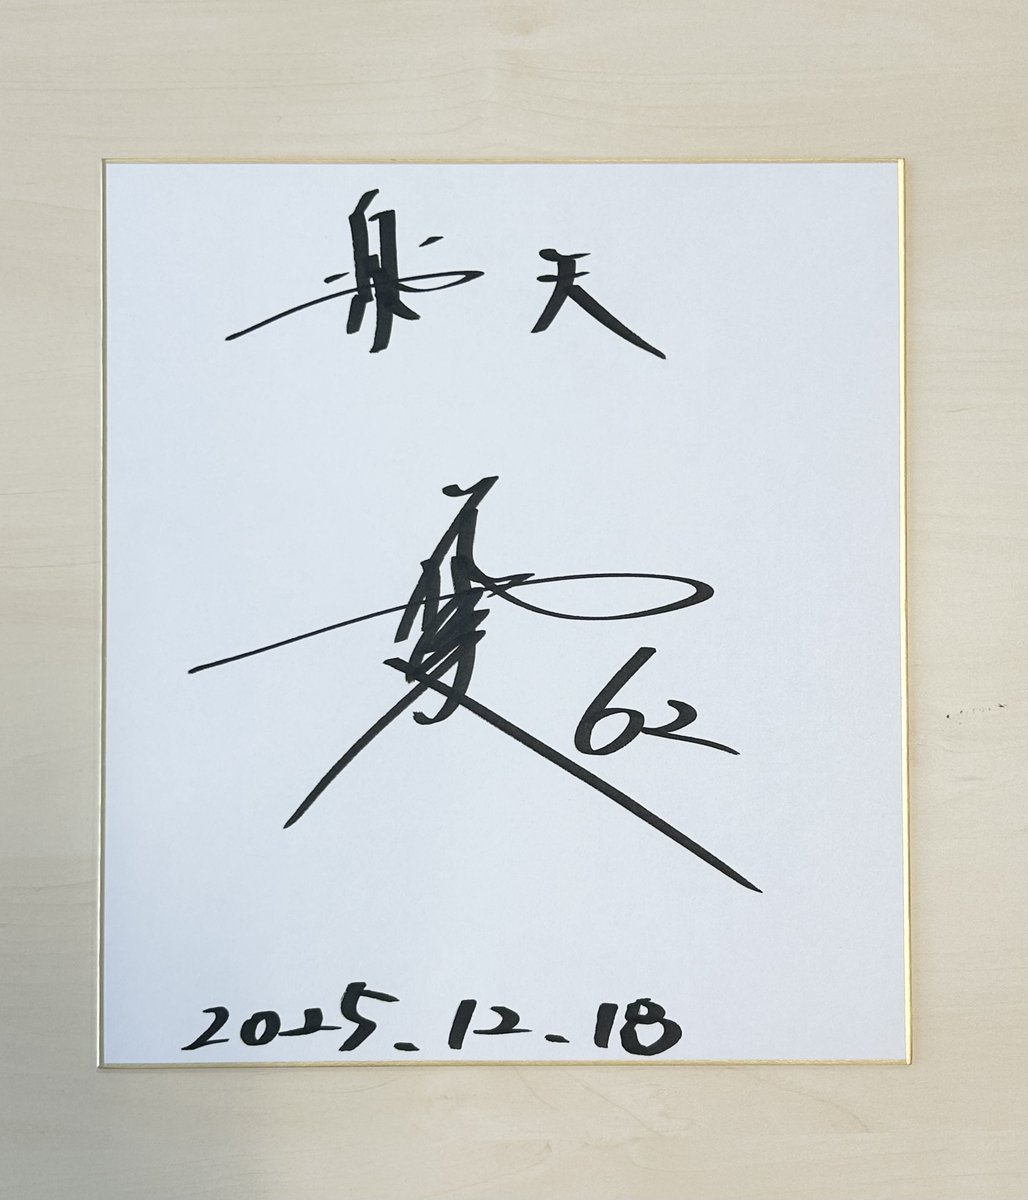 楽天
62
2025.12.18